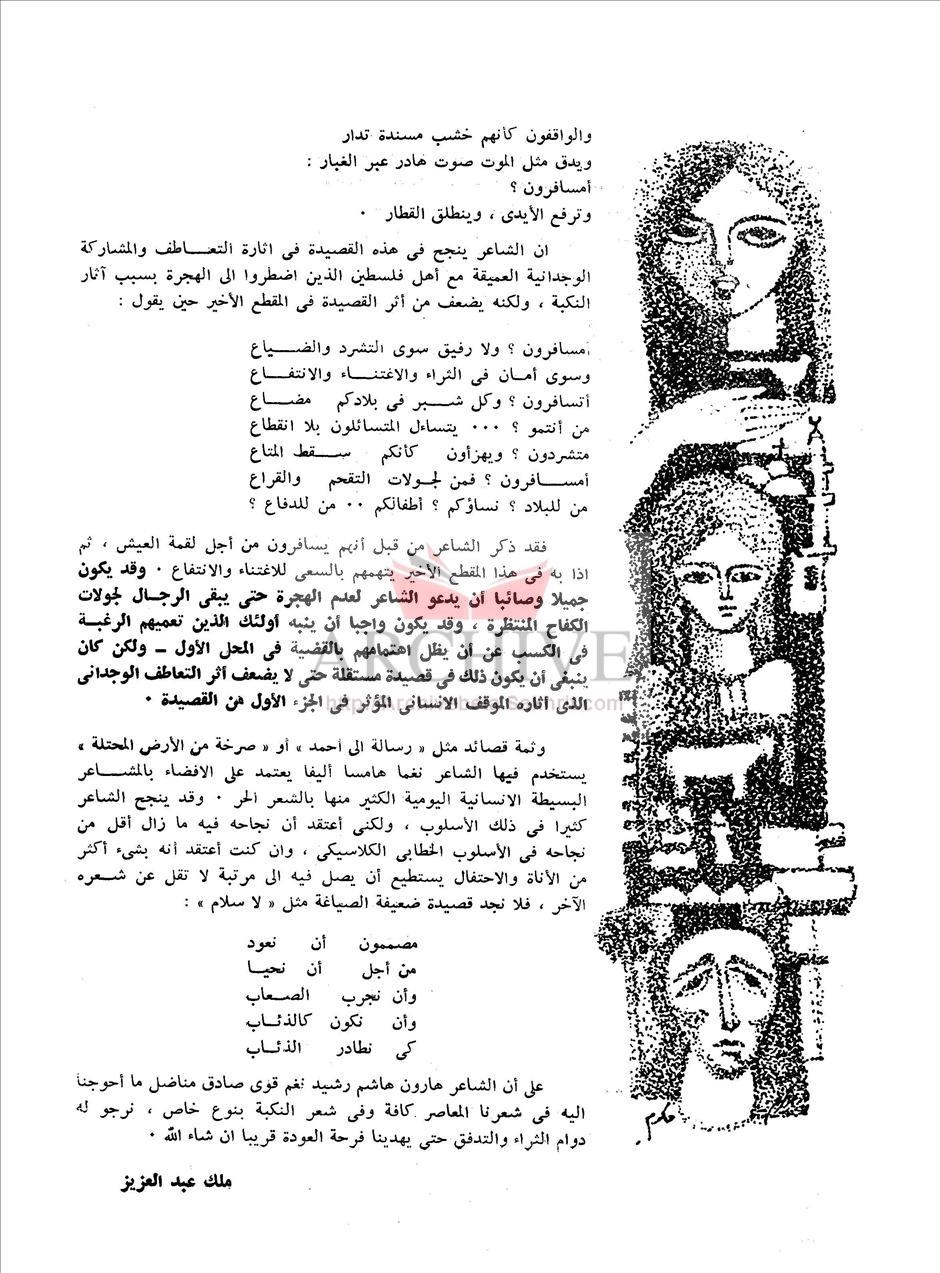 والواقفون كأنهم خشب مسندة تدار
ويدق مثل الموت صوت هادر عبر الغبار :
أمسافرون ؟
وترفع الأيدى ، وينطلق القطار ٠
ان الشاعر ينجح فى هذه القصيدة فى اثارة التعـــاطف والمشاركة
الوجدانية العميقة مع أهل فلسطين الذين اضطروا الى الهجرة بسبب آثار
النكبة ، ولكنه يضعف من أثر القصيدة فى المقطع الأخير حين يقول :
أمسافرون ؟ ولا رفيق سوى التشرد والضـــياع
وسوى أمـان فى الثراء والاغتنـــاء والانتفـــاع
أتسافرون ؟ وكل شـــبر فى بلادكم مضـــاع
من أنتمو ؟ ٠٠٠ يتساءل المتسائلون بلا انقطاع
متشردون ؟ ويهزأون كأنكم ســـقط المتاع
أمســـافرون ؟ فمن لجولات التقحم والقراع
من للبلاد ؟ نساؤكم ؟ أطفالكم ٠٠ من للدفاع ؟
فقد ذكر الشاعر من قبل أنهم يسافرون من أجل لقمة العيش ، ثم
اذا به فى هذا المقطع الأخير يتهمهم بالسعى للاغتناء والانتفاع ٠ وقد يكون
جميلا وصائبا أن يدعو الشاعر لعدم الهجرة حتى يبقى الرجـال لجولات
الكفاح المنتظرة ، وقد يكون واجبا أن ينبه أولئك الذين تعميهم الرغبـة
فى الكسب عن أن يظل اهتمامهم بالقضية فى المحل الأول ــ ولكن كان
ينبغى أن يكون ذلك فى قصيدة مستقلة حتى لا يضعف أثر التعاطف الوجدانى
الذى أثاره الموقف الانسانى المؤثر فى الجزء الأول من القصيدة ٠
وثمة قصائد مثل « رسالة الى أحمد » أو « صرخة من الأرض المحتلة »
يستخدم فيها الشاعر نغما هامسا أليفا يعتمد على الافضاء بالمشـــاعر
البسيطة الانسانية اليومية الكثير منها بالشعر الحر ٠ وقد ينجح الشاعر
كثيرا فى ذلك الأسلوب ، ولكنى أعتقد أن نجاحه فيه ما زال أقل من
نجاحه فى الأسلوب الخطابى الكلاسيكى ، وان كنت أعتقد أنه بشىء أكثر
من الأناة والاحتفال يستطيع أن يصل فيه الى مرتبة لا تقل عن شـــعره
الآخر ، فلا نجد قصيدة ضعيفة الصياغة مثل « لا سلام » :
مصممون أن نعود
من أجل أن نحيـا
وأن نجرب الصـعاب
وأن نكون كالذئـاب
كى نطادر الذئـاب
على أن الشاعر هارون هاشم رشيد نغم قوى صادق مناضل ما أحوجنا
اليه فى شعرنا المعاصر كافة وفى شعر النكبة بنوع خاص ، نرجو له
دوام الثراء والتدفق حتى يهدينا فرحة العودة قريبا ان شاء الله ٠
ملك عبد العزيز
ARCHIVE